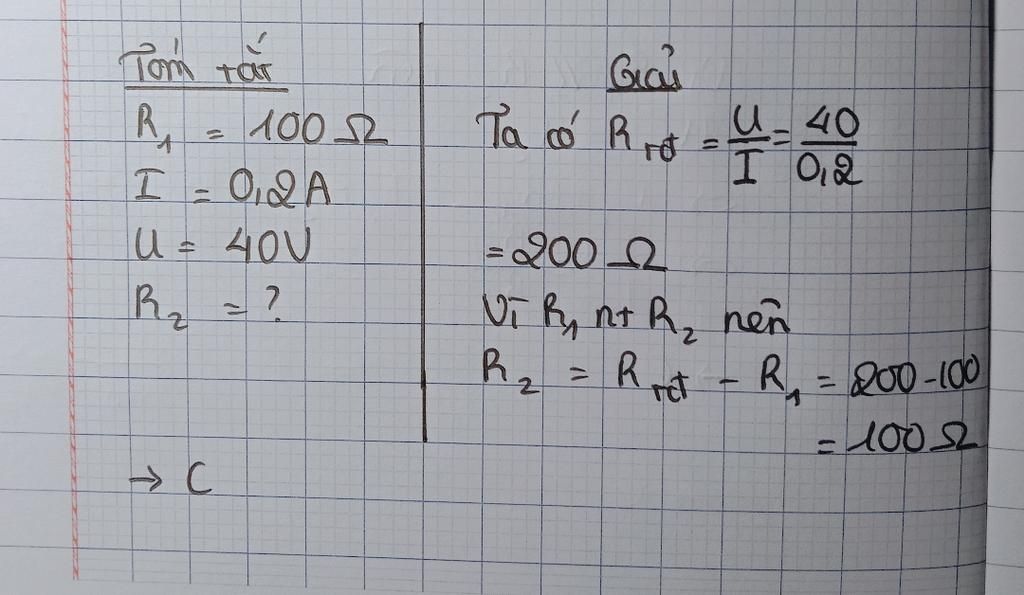 Tóm tắt
R₁ = 100 Ω
I = 0,2A
U = 40V
R₂ = ?
→ C
Giải
Ta có R_tđ = U/I = 40/0,2
= 200 Ω
Vì R₁ nt R₂ nên
R₂ = R_tđ - R₁ = 200-100
= 100 Ω